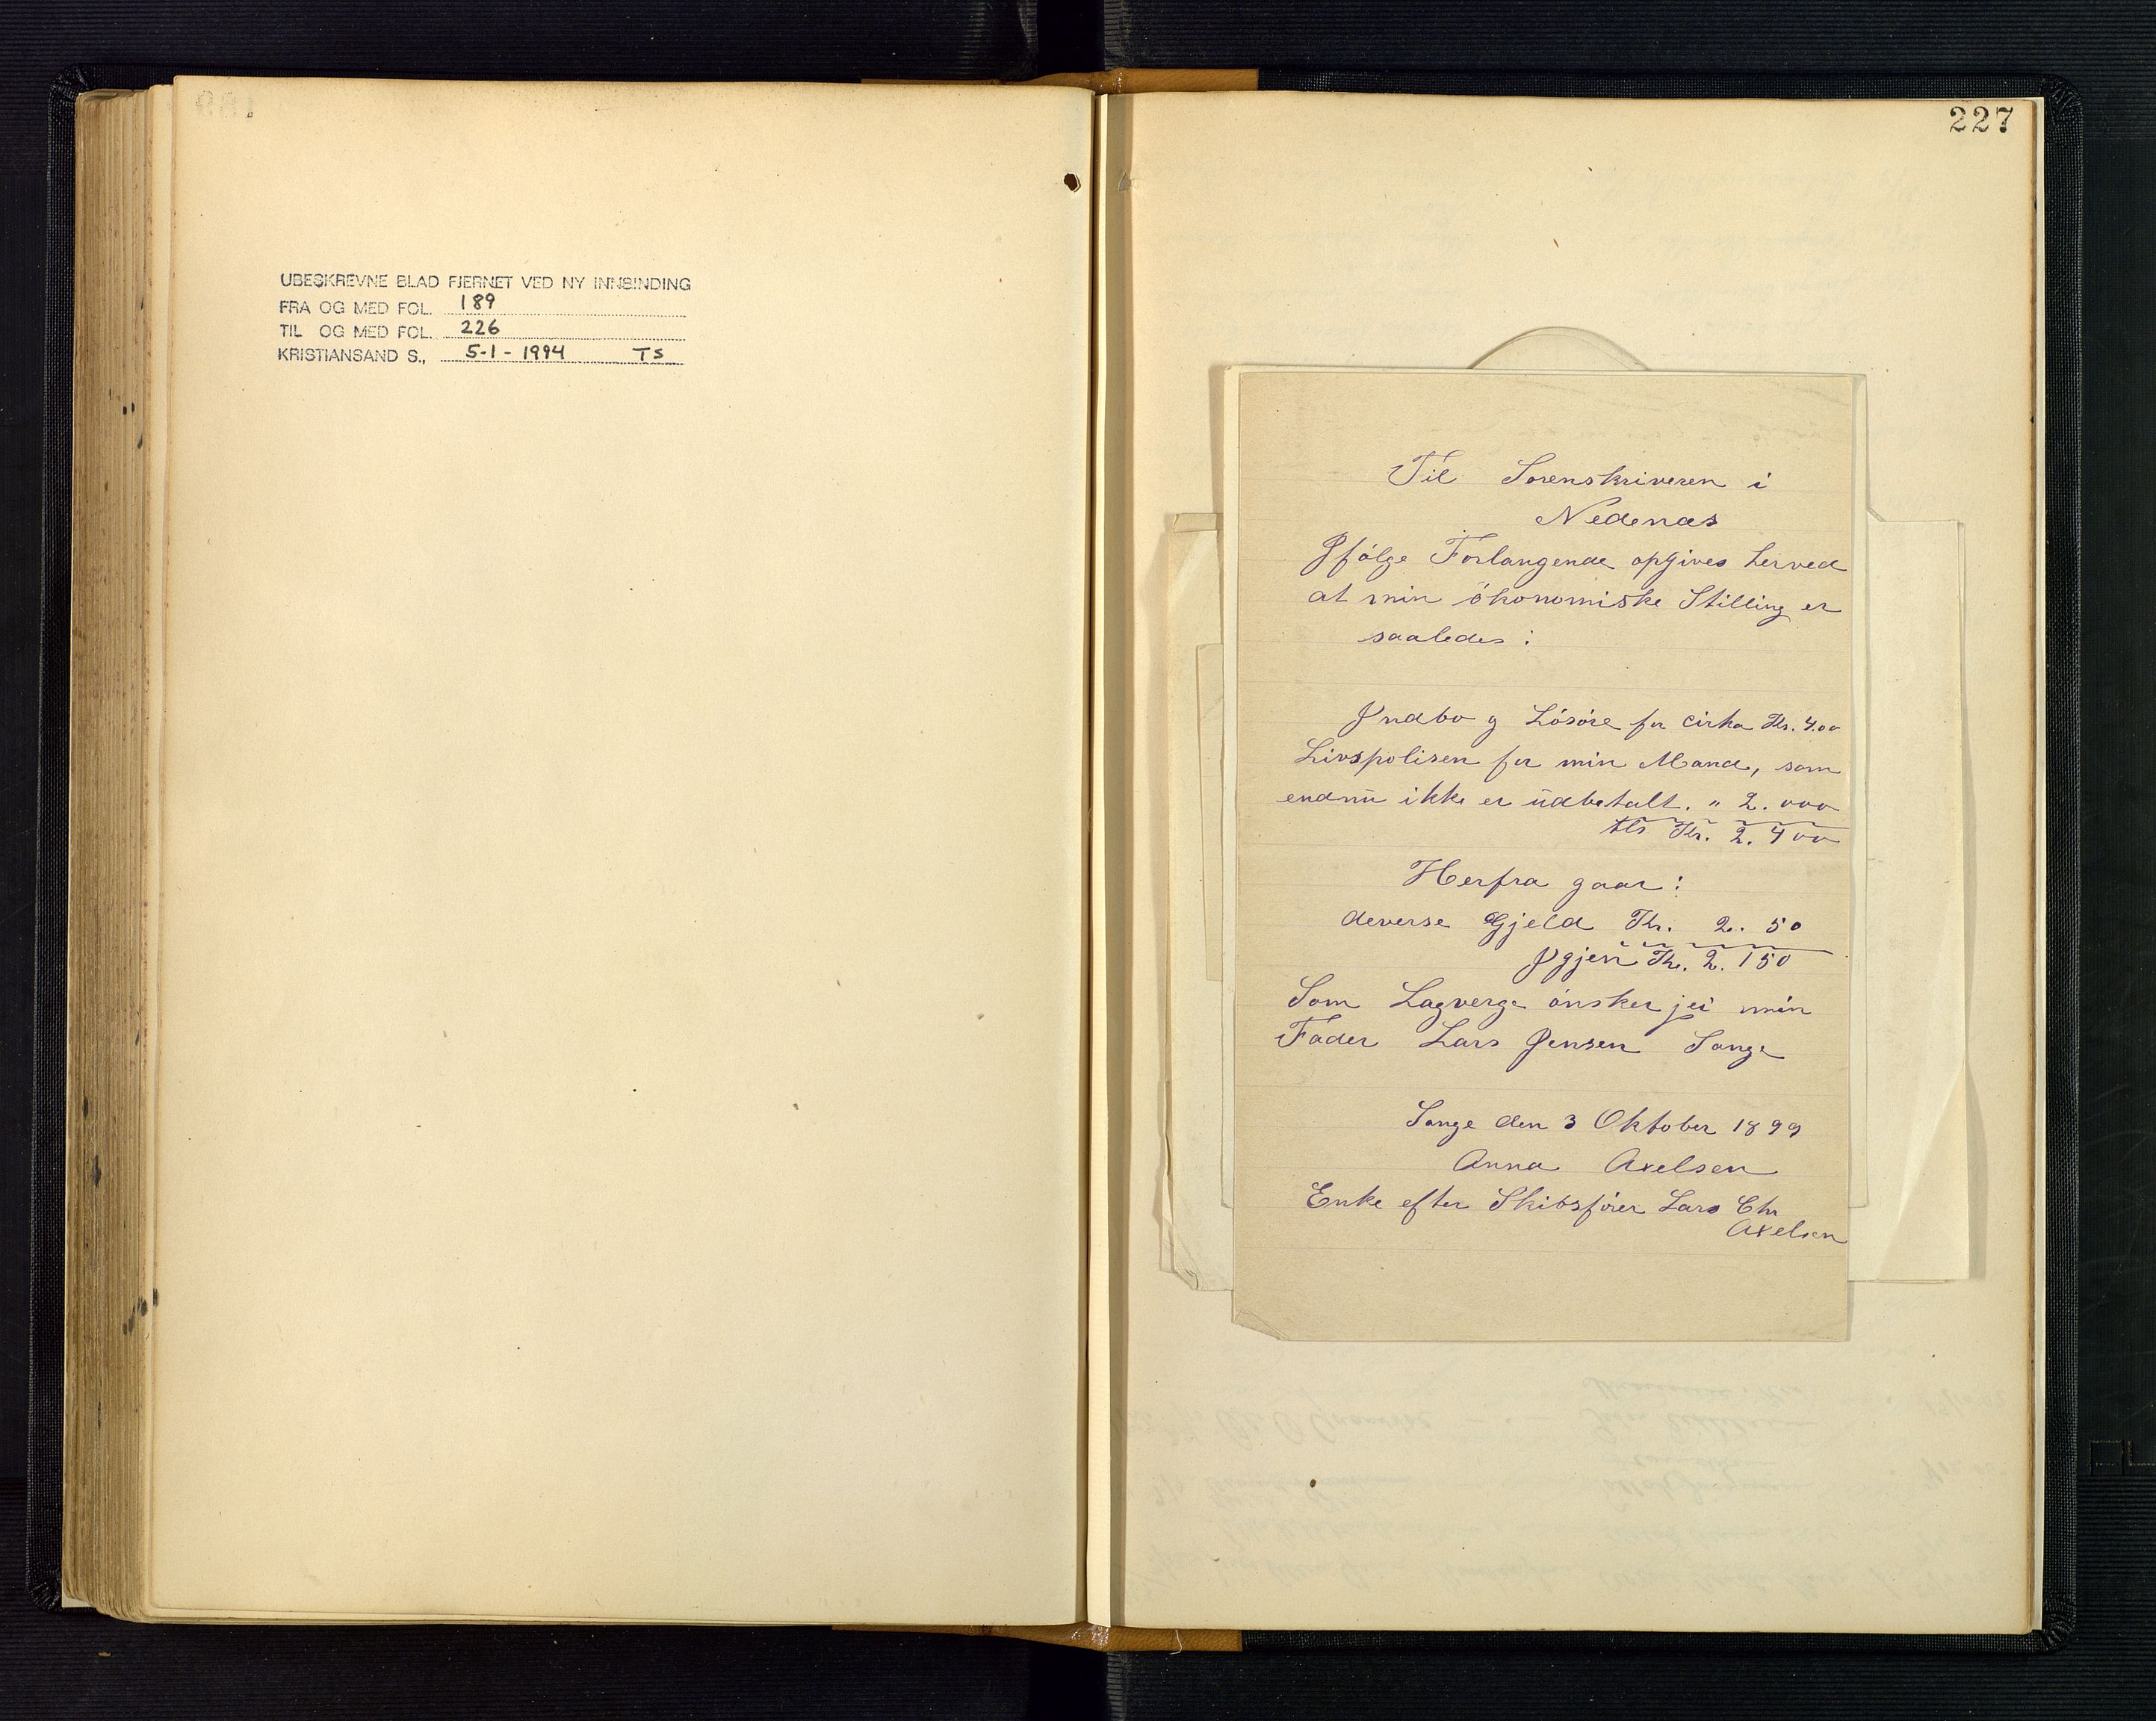 UBESKREVNE BLAD FJERNET VED NY INNBINDING
FRA OG MED FOL. 189
TIL OG MED FOL. 226
KRISTIANSAND S., 5-1-1994 TS
227
Til Sorenskriveren i
Nedenæs
Ifølge Forlangende opgives herved
at min ökonomiske Stilling er
saaledes :
Indbo og Lösöre for cirka Kr. 400
Livspolisen for min Mand, som
endnu ikke er udbetalt. " 2.000
tls Kr. 2.400
Herfra gaar :
deverse Gjeld Kr. 2.50
Igjen Kr. 2.150
Som Lagverge önsker jei min
Fader Lars Jensen Songe
Songe den 3 Oktober 1899
Anna Axelsen
Enke efter Skibsförer Lars Chr
Axelsen